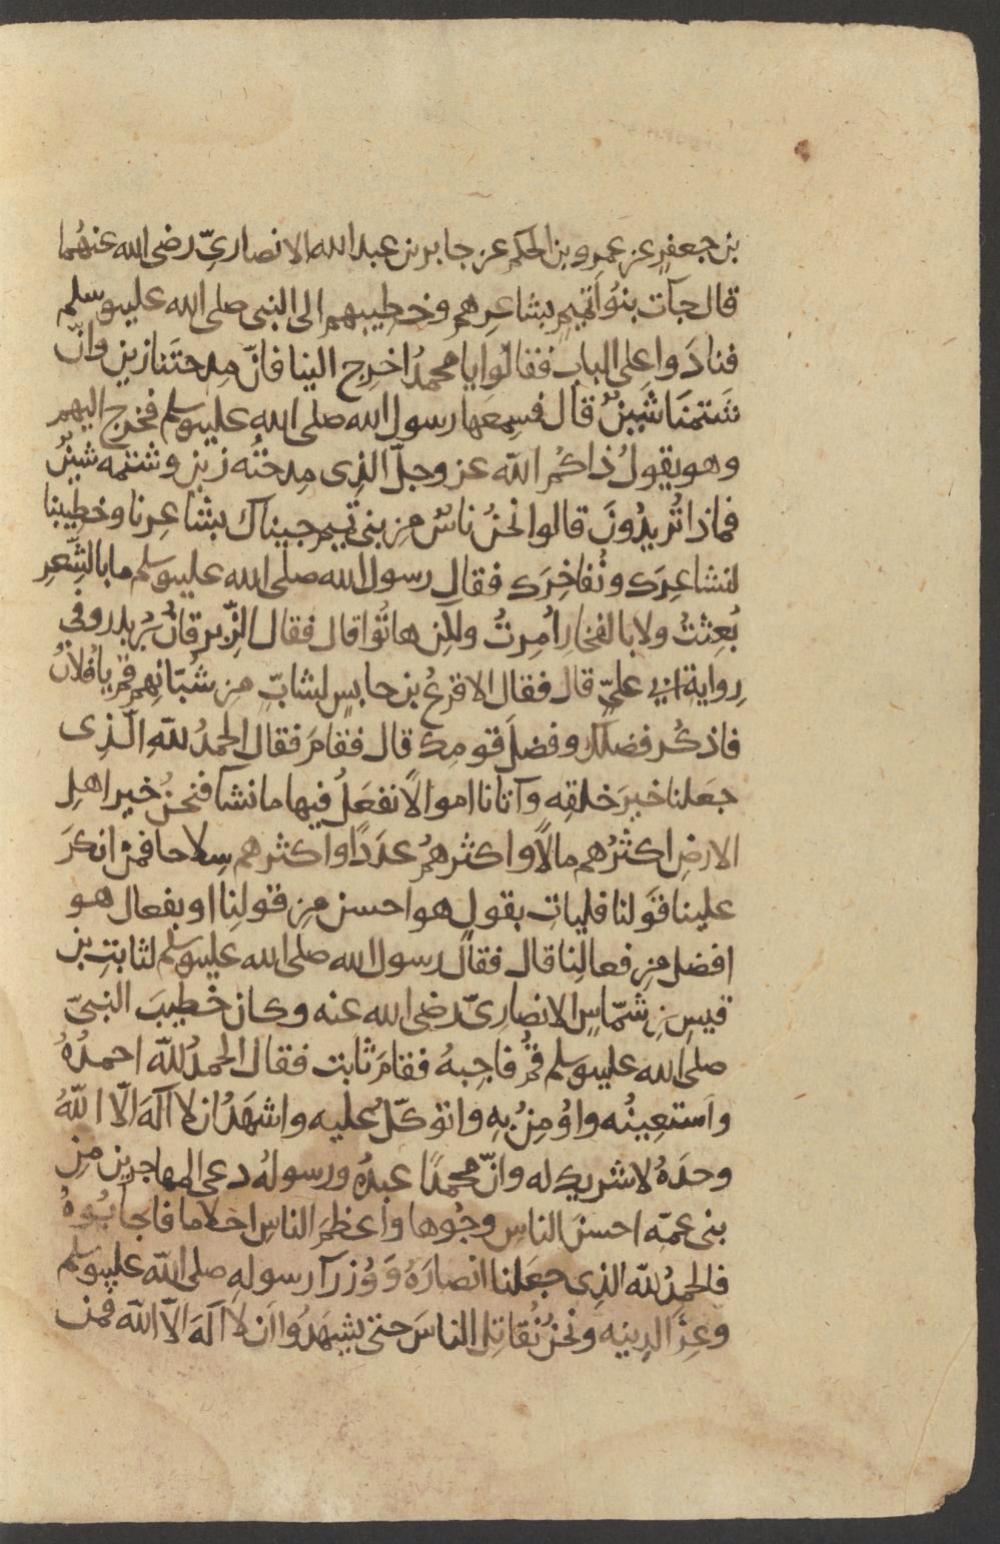 بن جعفرٍ عن عمرو بن الحكم عن جابر بن عبد الله الانصاريّ رضى الله عنهُما
قال جآت بنُوا تميمٍ بشاعِرِهم وخطِيبهم الى النبى صلى الله عليه وسلم
فنادَوا على الباب فقالُوا يا محمدُ اخرج الينا فانّ مِدحتَنا زين وانّ
شَتمَنا شينٌ قال فسمِعَها رسول الله صلى الله عليه وسلم فخرج اليهم
وهو يقولُ ذاكمُ الله عز وجلّ الذِى مِدحتُه زين وشتمه شينٌ
فماذا تُريدُونَ قالوا نحنُ ناسٌ مِن بنى تميم جيناك بشاعِرنا وخطِيبنا
لنشاعِرَك ونُفاخِرَك فقال رسول الله صلى الله عليه وسلم ما بالشِّعرِ
بُعِثتُ ولا بالفخار اُمِرتُ ولكِن هاتُوا قال فقال الزِّبرقانُ بن بدر وفى
رِواية ابى علىّ قال فقال الاقرعُ بن حابسٍ لشابّ مِن شُبّانِهم قُم يا فُلانُ
فاذكُر فضلك وفضلَ قومِك قال فقامَ فقال الحمدُ للهِ الّذِى
جعَلنا خيرَ خلقِه وآتانا اموالًا نفعَلُ فيها ما نشآ فنحنُ خير اهلِ
الارضِ اكثرُهم مالًا واكثرهُم عدَدًا واكثرهم سِلاحا فمن انكرَ
علينا قَولنا فليات بقولٍ هو احسن مِن قولِنا او بفعال هو
افضل مِن فعالِنا قال فقال رسول الله صلى الله عليه وسلم لثابتِ بن
قيسِ بن شمّاسٍ الانصارىّ رضى الله عنه وكان خطِيبَ النبىّ
صلى الله عليه وسلم قُم فاجِبهُ فقامَ ثابت فقال الحمدُ للّه احمدُهُ
واستعِينُه واُومِنُ بِه واتوكّلُ عليه واشهَدُ ان لا اله الّا اللّهُ
وحدَهُ لا شريك له وانّ محمدًا عبدُه ورسولُه دعى المهاجرين مِن
بنى عمّه احسنَ الناسِ وجُوها واعظمَ الناسِ احلاما فاجابُوهُ
فالحمدُ للّه الذِى جعَلنا انصارَهُ وَوُزرآ رسولِهِ صلى اللّه عليه وسلم
وعِزًا لدِينه ونحنُ نُقاتِل الناسَ حتى يشهَدُوا ان لا اله الّا اللّه فمن